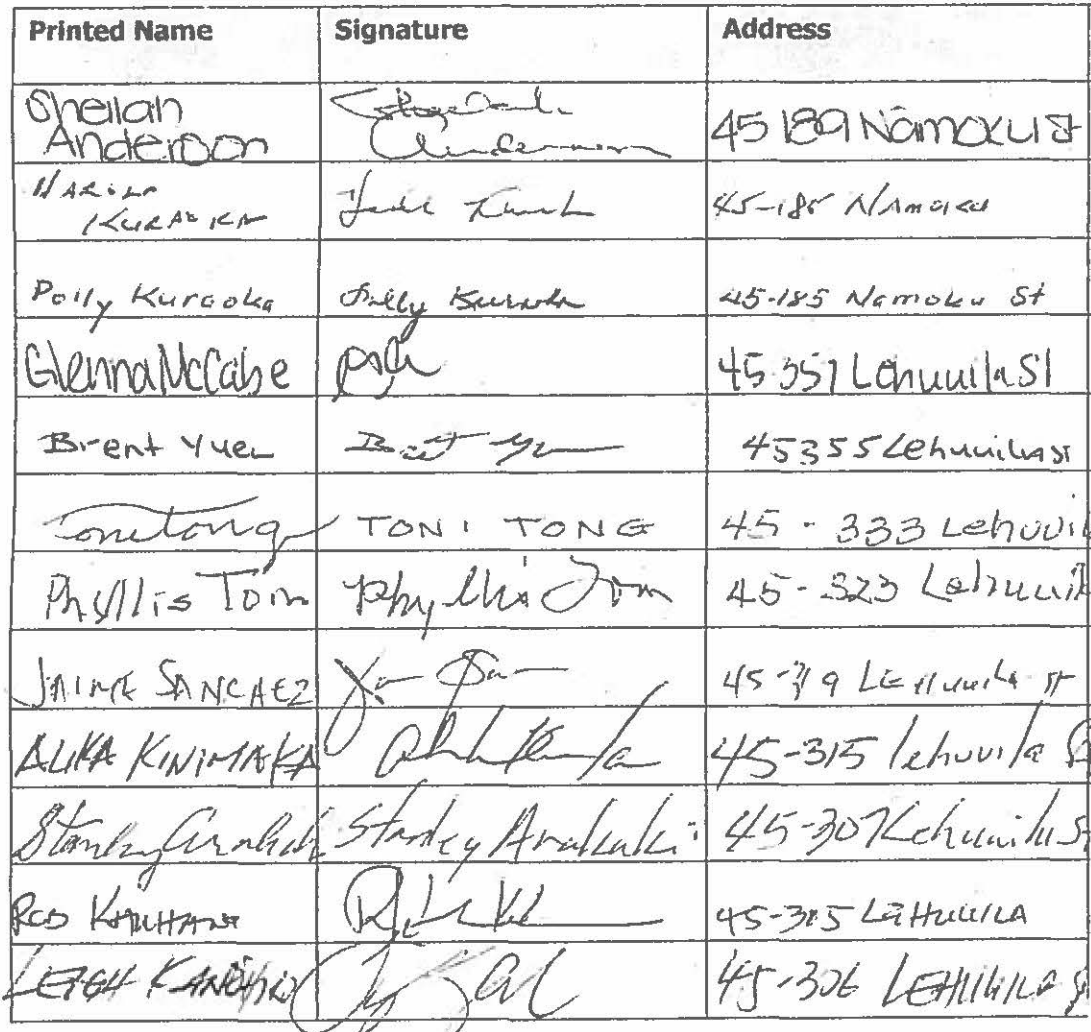 Printed Name Signature Address
Sheilah
Anderson Anderson 45 189 Namoku St
Kuraoka 45-185 Namoku
Polly Kuraoka Polly Kuraoka 45-185 Namoku St
Glenna McCabe 45 357 Lehuuila St
Brent Yuen Brent 45355 Lehuuila St
Toni Tong TONI TONG 45 - 333 Lehuui
Phyllis Tom Phyllis Tom 45-323 Lehuuil
JAIME SANCHEZ 45-319 Lehuuila St
ALIKA KINIMAKA 45-315 lehuuila
Stanley Arakaki Stanley Arakaki 45-307 Lehuuila S
ROD 45-305 LEHUUILA
LEIGH 45-306 LEHUUILA